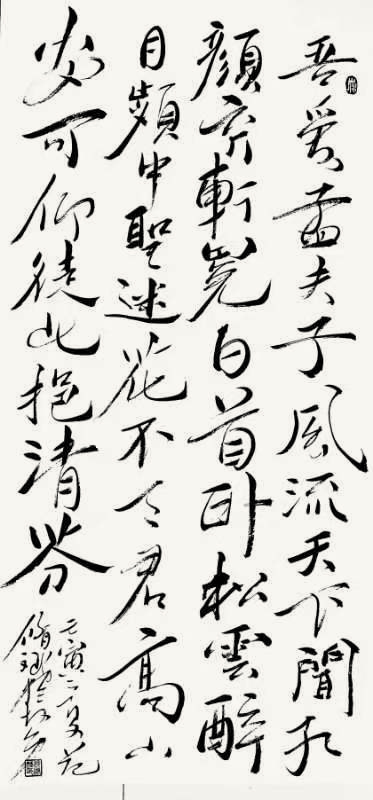 吾爱孟夫子風流天下聞紅
顏弃軒冕白首卧松雲醉
月頻中聖迷花不事君高山
安可仰徒此挹清芬
壬寅之夏